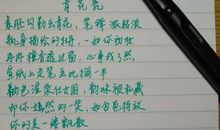 青花瓷
素胚勾勒出青花，笔锋浓转淡
瓶身描绘的牡丹，一如你初妆
冉冉檀香透过窗，心事我了然
宣纸上走笔至此搁一半
釉色渲染仕女图，韵味被私藏
而你嫣然的一笑，如含苞待放
你的美一缕飘散